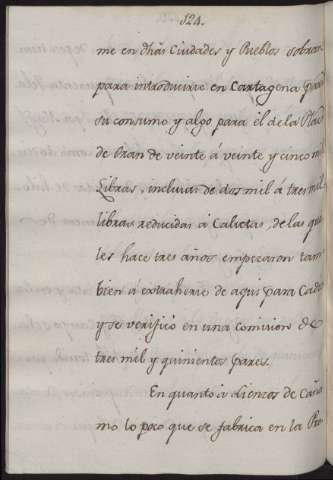 124.
me en dhãs Ciudades y Pueblos sobran
para introducirse en Cartagena para
su consumo y algo para el de la Plaza
de Oran de veinte á veinte y cinco mil
Libras, inclusas de dos mil á tres mil
libras reducidas á Calcetas, de las que
les hace tres años empezaron tam
bien á extraherse de aqui para Cadiz
y se verificó en una comision de
tres mil y quinientos pares.
En quanto á lienzos de Caña
mo lo poco que se fabrica en la Pro